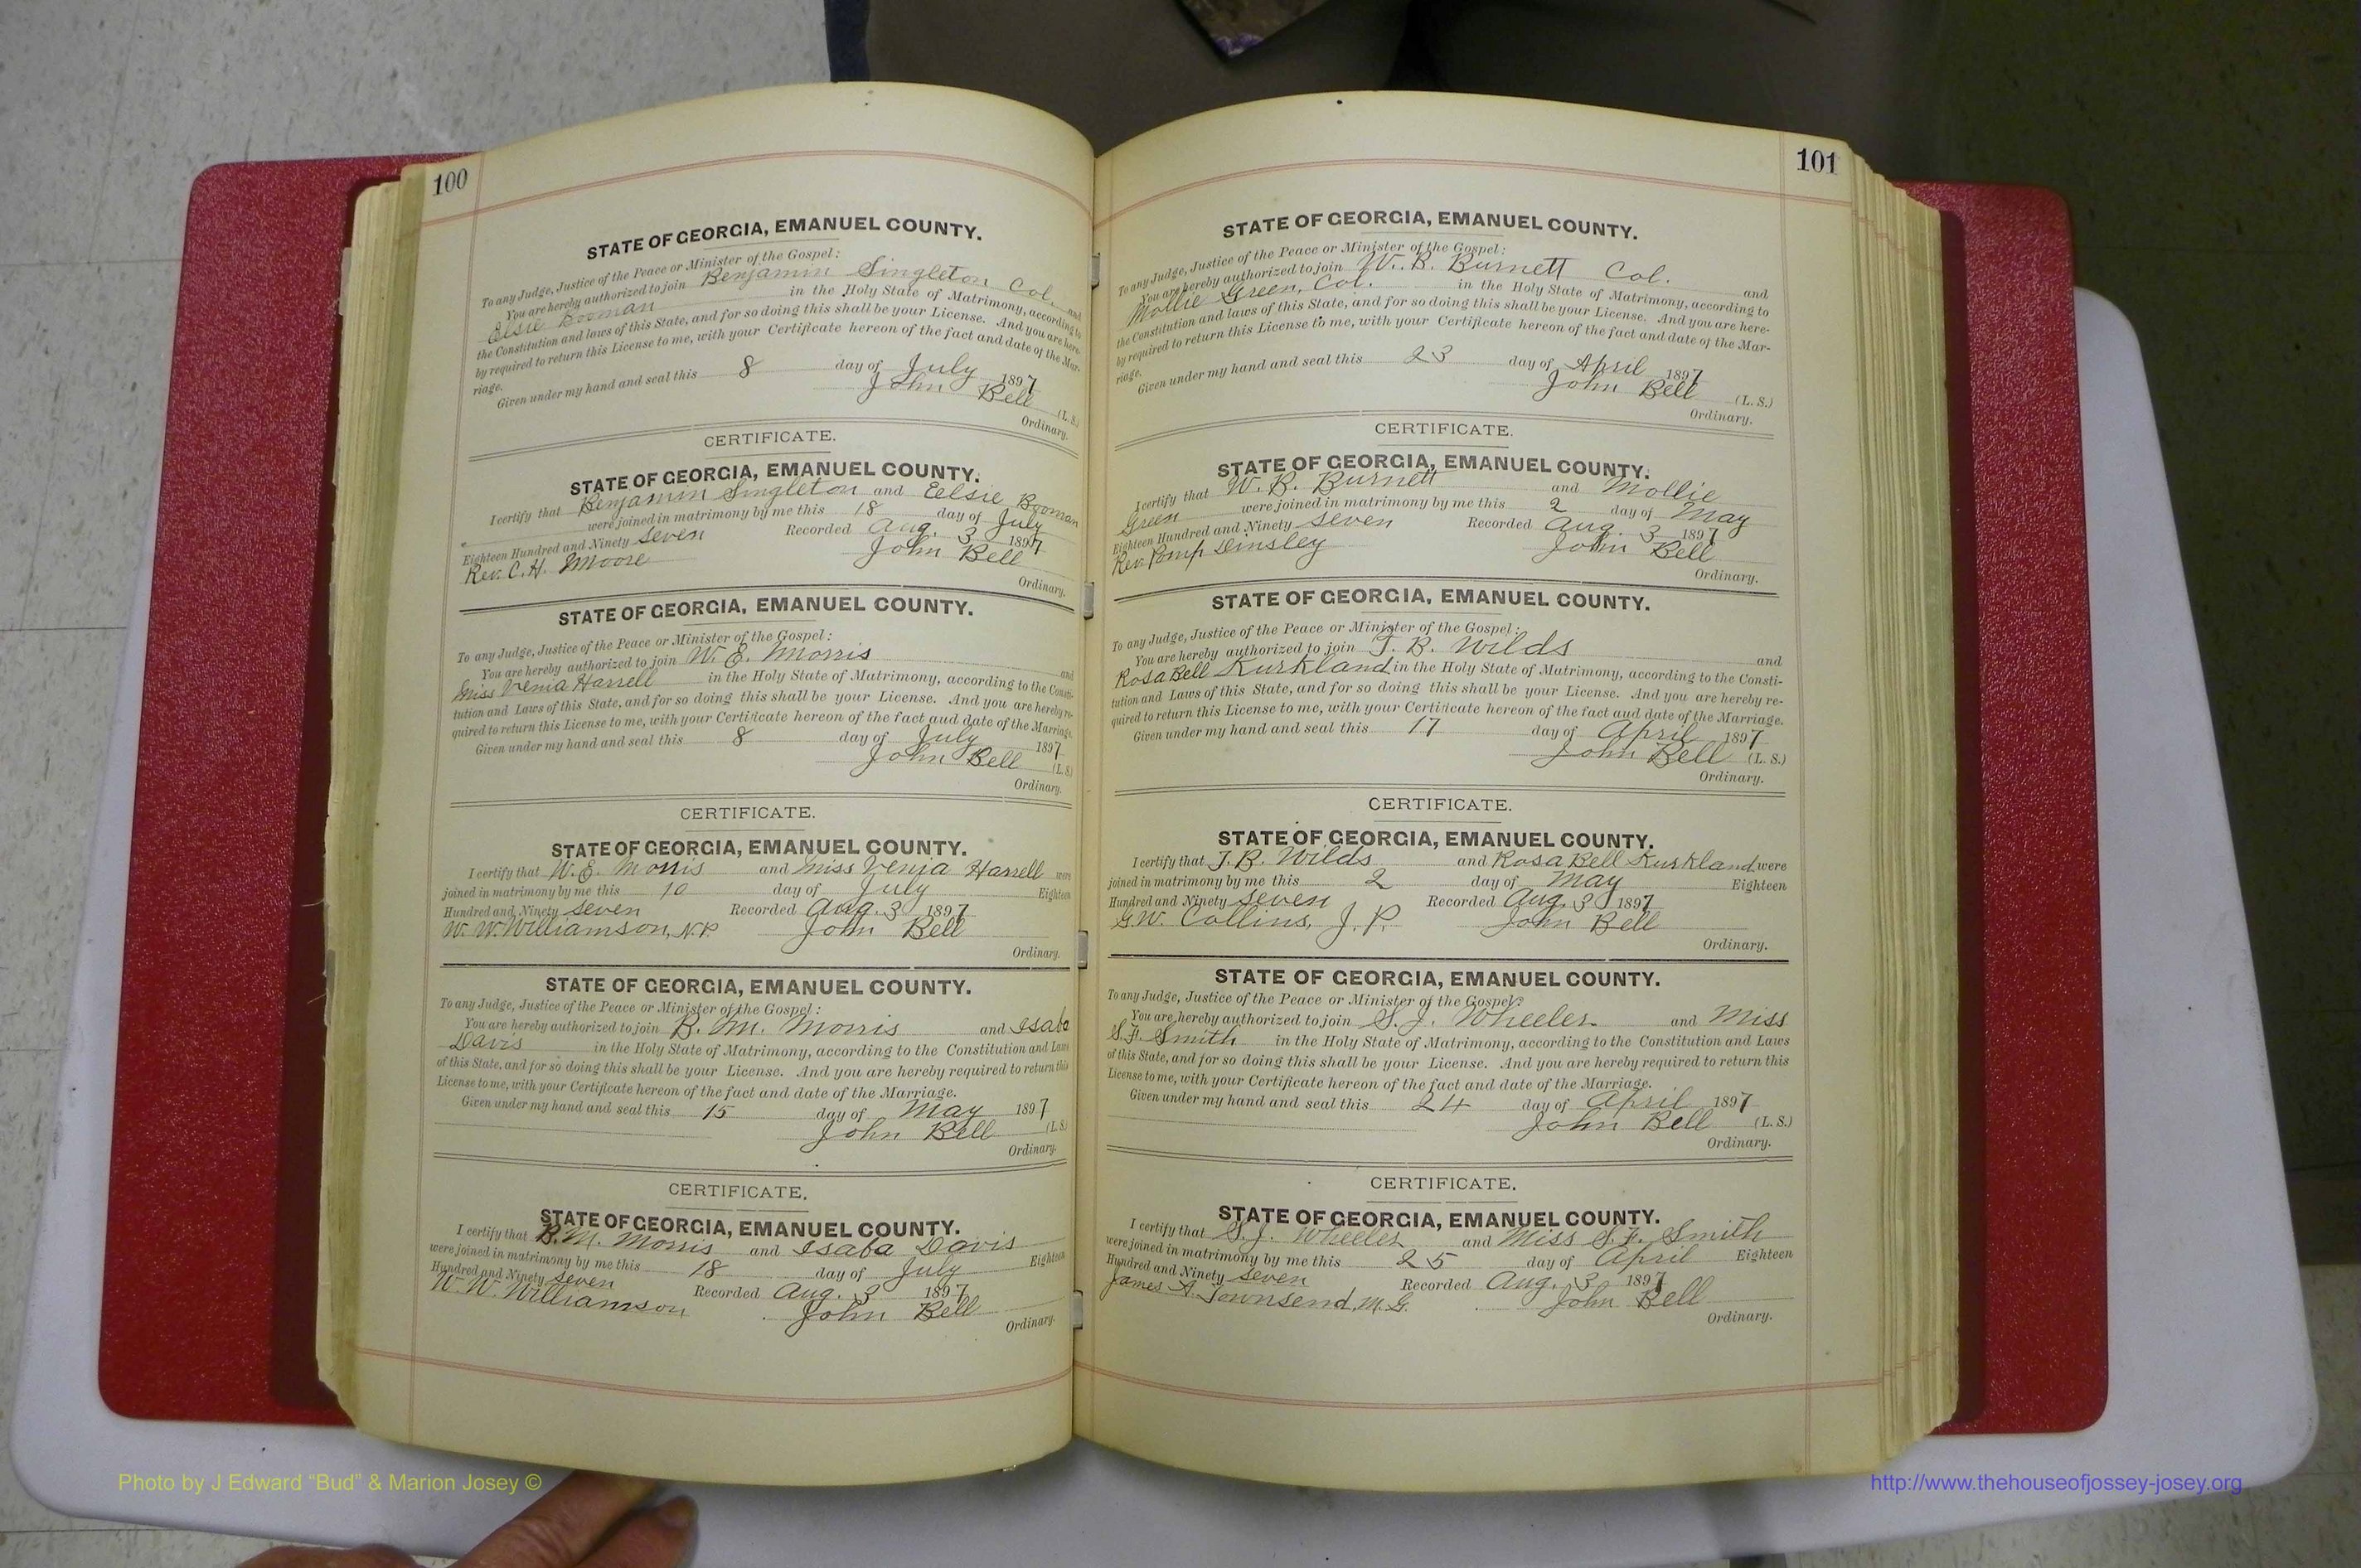 100
STATE OF GEORGIA, EMANUEL COUNTY.
To any Judge, Justice of the Peace or Minister of the Gospel:
You are hereby authorized to join Benjamin Singleton Col. and
Elsie Booman in the Holy State of Matrimony, according to
the Constitution and laws of this State, and for so doing this shall be your License. And you are here-
by required to return this License to me, with your Certificate hereon of the fact and date of the Mar-
riage.
Given under my hand and seal this 8 day of July 1897
John Bell (L. S.)
Ordinary.
CERTIFICATE.
STATE OF GEORGIA, EMANUEL COUNTY.
I certify that Benjamin Singleton and Eelsie Booman
were joined in matrimony by me this 18 day of July
Eighteen Hundred and Ninety seven Recorded Aug. 3 1897
Rev. C. H. Moore John Bell
Ordinary.
STATE OF GEORGIA, EMANUEL COUNTY.
To any Judge, Justice of the Peace or Minister of the Gospel:
You are hereby authorized to join W. E. Morris and
Miss Venia Harrell in the Holy State of Matrimony, according to the Consti-
tution and Laws of this State, and for so doing this shall be your License. And you are hereby re-
quired to return this License to me, with your Certificate hereon of the fact and date of the Marriage.
Given under my hand and seal this 8 day of July 1897
John Bell (L. S)
Ordinary.
CERTIFICATE.
STATE OF GEORGIA, EMANUEL COUNTY.
I certify that W. E. Morris and Miss Venia Harrell were
joined in matrimony by me this 10 day of July Eighteen
Hundred and Ninety seven Recorded Aug. 3 1897
W. W. Williamson, N.P. John Bell
Ordinary.
STATE OF GEORGIA, EMANUEL COUNTY.
To any Judge, Justice of the Peace or Minister of the Gospel:
You are hereby authorized to join B. M. Morris and Esaba
Davis in the Holy State of Matrimony, according to the Constitution and Laws
of this State, and for so doing this shall be your License. And you are hereby required to return this
License to me, with your Certificate hereon of the fact and date of the Marriage.
Given under my hand and seal this 15 day of May 1897
John Bell (L. S.)
Ordinary.
CERTIFICATE.
STATE OF GEORGIA, EMANUEL COUNTY.
I certify that B. M. Morris and Esaba Davis
were joined in matrimony by me this 18 day of July Eighteen
Hundred and Ninety seven Recorded Aug. 3 1897
W. W. Williamson John Bell
Ordinary.
101
STATE OF GEORGIA, EMANUEL COUNTY.
To any Judge, Justice of the Peace or Minister of the Gospel:
You are hereby authorized to join W. B. Burnett Col. and
Mollie Green, Col. in the Holy State of Matrimony, according to
the Constitution and laws of this State, and for so doing this shall be your License. And you are here-
by required to return this License to me, with your Certificate hereon of the fact and date of the Mar-
riage.
Given under my hand and seal this 23 day of April 1897
John Bell (L. S.)
Ordinary.
CERTIFICATE.
STATE OF GEORGIA, EMANUEL COUNTY.
I certify that W. B. Burnett and Mollie
Green were joined in matrimony by me this 2 day of May
Eighteen Hundred and Ninety seven Recorded Aug. 3 1897
Rev. Pomp Dinsley John Bell
Ordinary.
STATE OF GEORGIA, EMANUEL COUNTY.
To any Judge, Justice of the Peace or Minister of the Gospel:
You are hereby authorized to join J. B. Wilds and
Rosa Bell Kurkland in the Holy State of Matrimony, according to the Consti-
tution and Laws of this State, and for so doing this shall be your License. And you are hereby re-
quired to return this License to me, with your Certificate hereon of the fact and date of the Marriage.
Given under my hand and seal this 17 day of April 1897
John Bell (L. S.)
Ordinary.
CERTIFICATE.
STATE OF GEORGIA, EMANUEL COUNTY.
I certify that J. B. Wilds and Rosa Bell Kurkland were
joined in matrimony by me this 2 day of May Eighteen
Hundred and Ninety seven Recorded Aug. 3 1897
G. W. Collins, J. P. John Bell
Ordinary.
STATE OF GEORGIA, EMANUEL COUNTY.
To any Judge, Justice of the Peace or Minister of the Gospel:
You are hereby authorized to join S. J. Wheeler and Miss
S. F. Smith in the Holy State of Matrimony, according to the Constitution and Laws
of this State, and for so doing this shall be your License. And you are hereby required to return this
License to me, with your Certificate hereon of the fact and date of the Marriage.
Given under my hand and seal this 24 day of April 1897
John Bell (L. S.)
Ordinary.
CERTIFICATE.
STATE OF GEORGIA, EMANUEL COUNTY.
I certify that S. J. Wheeler and Miss S. F. Smith
were joined in matrimony by me this 25 day of April Eighteen
Hundred and Ninety seven Recorded Aug. 3 1897
James A. Townsend, M. G. John Bell
Ordinary.
Photo by J Edward “Bud” & Marion Josey ©
http://www.thehouseofjossey-josey.org